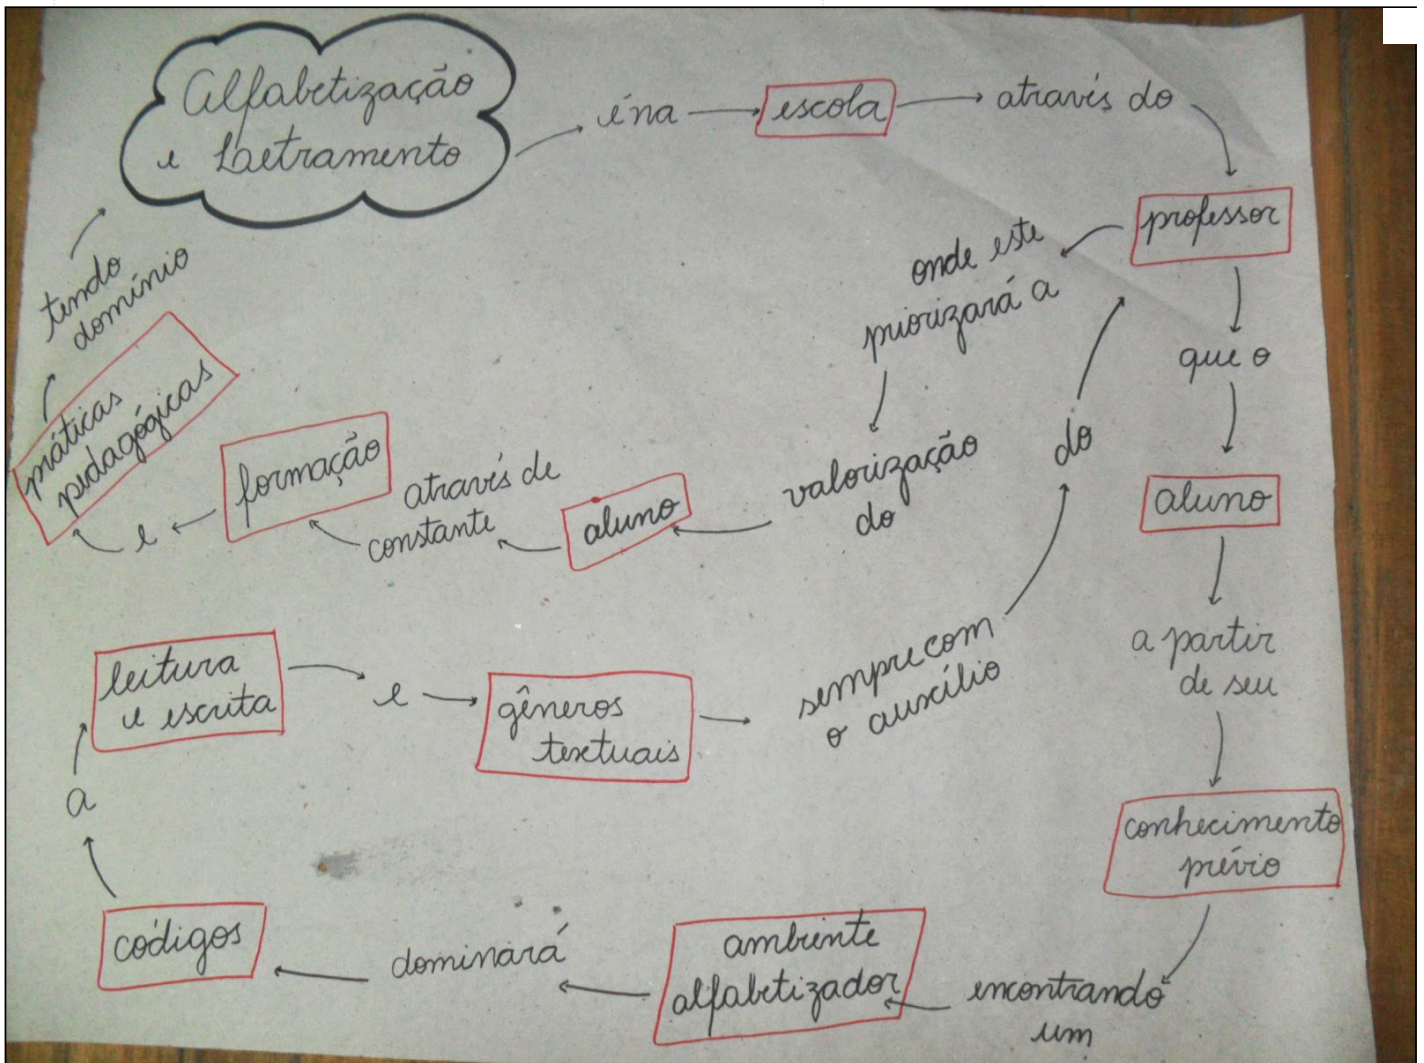 Alfabetização
e Letramento
é na
escola
através do
professor
que o
aluno
a partir
de seu
conhecimento
prévio
encontrando
um
ambiente
alfabetizador
dominará
códigos
a
leitura
e escrita
e
gêneros
textuais
sempre com
o auxílio
do
onde este
priorizará a
valorização
do
aluno
através de
constante
formação
e
práticas
pedagógicas
tendo
domínio